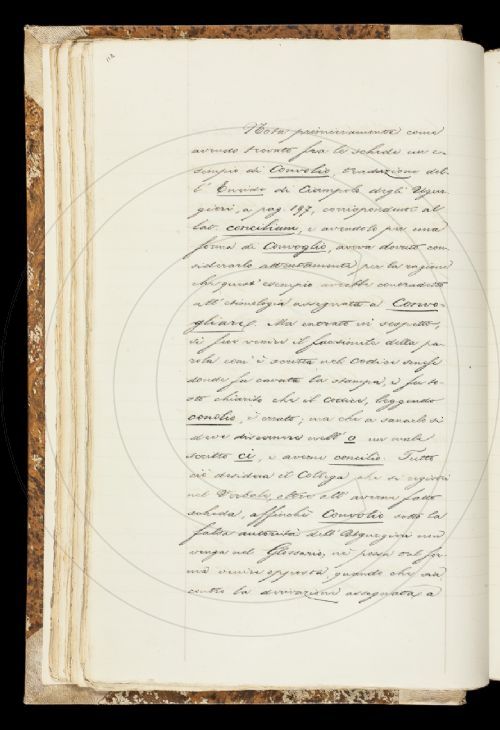 112
Nota primieramente come
avendo trovato fra le schede un e-
sempio di Convolio, traduzione del-
l' Eneide di Ciampolo degli Ugur-
gieri, a pag. 197, corrispondente al
lat. concilium, e avendolo per una
forma di Convoglio, aveva dovuto con-
siderarlo attentamente per la ragione
che quest' esempio avrebbe contradetto
all' etimologia assegnata a Convo-
gliare. Ma entrato in sospetto,
si fece venire il facsimile della pa-
rola com' è scritta nel Codice senese
donde fu cavata la stampa, e fu to-
sto chiarito che il codice, leggendo
conolio, è errato; ma che a sanarlo si
deve discernere nell' o un male
scritto ci, e averne concilio. Tutto
ciò desidera il Collega che si registri
nel Verbale, oltre all' averne fatto
scheda, affinchè Convolio sotto la
falsa autorità dell' Ugurgieri non
venga nel Glossario, nè possa sul for-
mà venire opposta quando che sia
contro la derivazione assegnata a